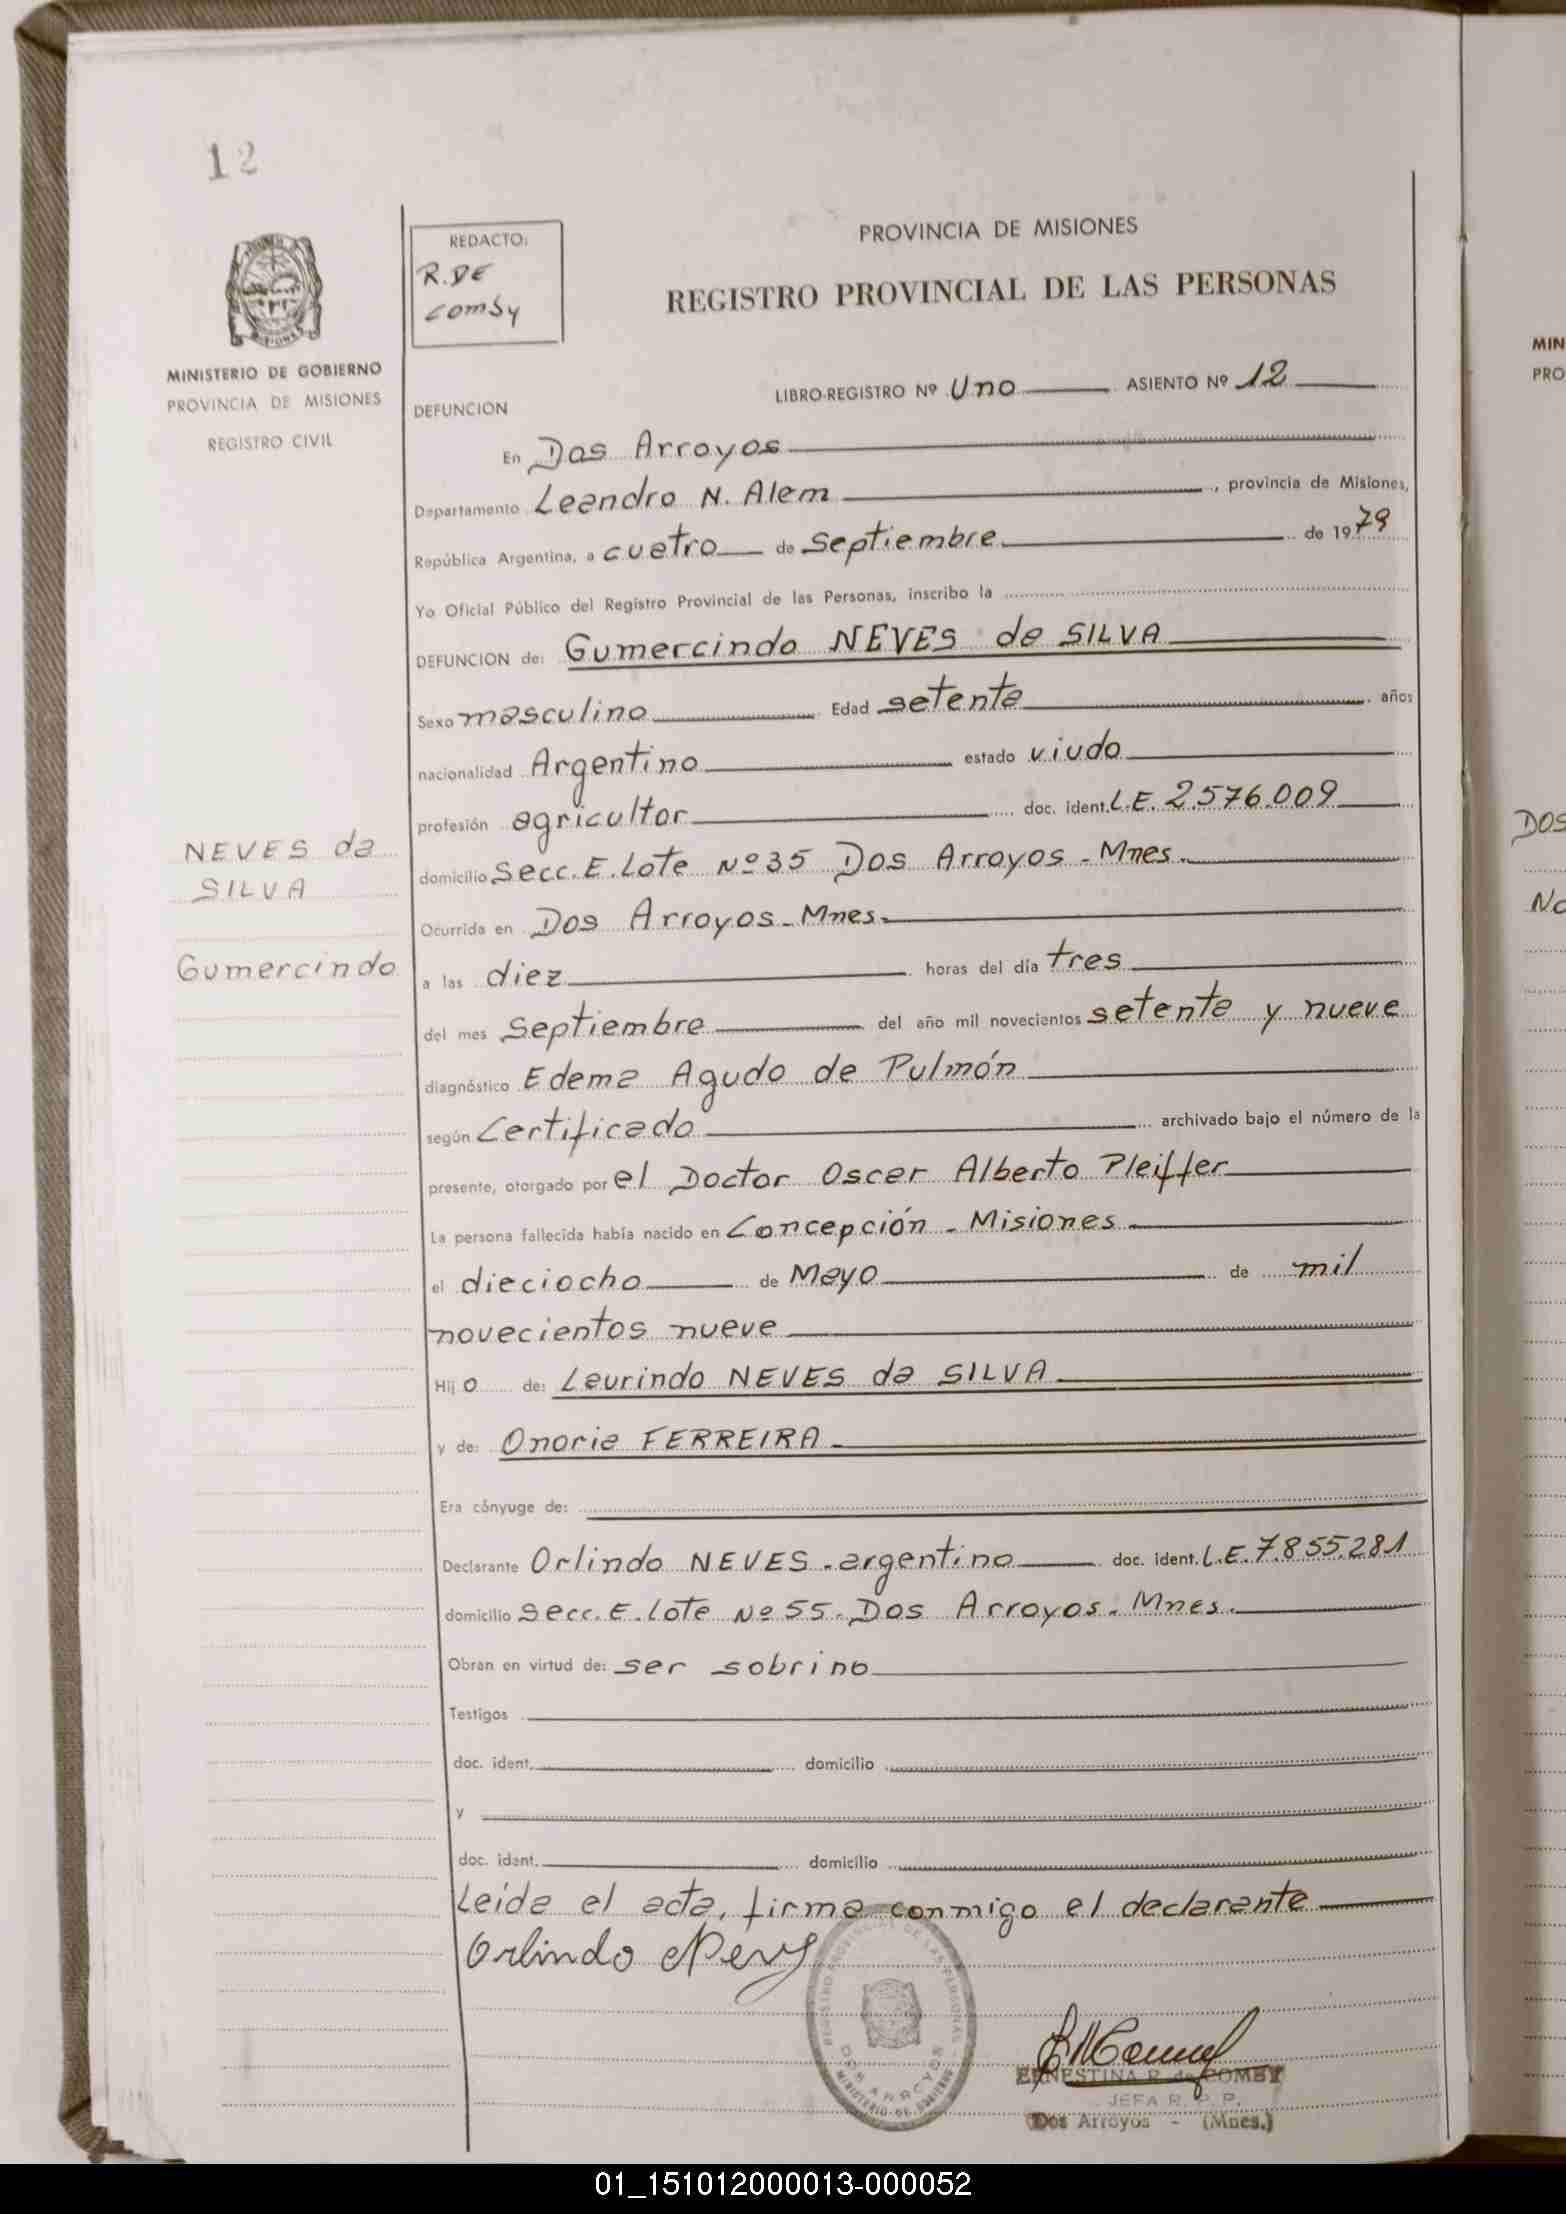 12
REDACTO:
R. DE
COMBY
PROVINCIA DE MISIONES
REGISTRO PROVINCIAL DE LAS PERSONAS
MINISTERIO DE GOBIERNO
PROVINCIA DE MISIONES
REGISTRO CIVIL
LIBRO-REGISTRO Nº Uno ASIENTO Nº 12
DEFUNCION
En Dos Arroyos
Departamento Leandro N. Alem, provincia de Misiones,
República Argentina, a cuatro de Septiembre de 1979
Yo Oficial Público del Registro Provincial de las Personas, inscribo la
DEFUNCION de: Gumercindo NEVES da SILVA
Sexo masculino Edad setenta, años
nacionalidad Argentino estado viudo
profesión agricultor doc. ident. L.E. 2.576.009
NEVES da
SILVA
Gumercindo
domicilio Secc. E. Lote Nº 35 Dos Arroyos - Mnes.
Ocurrida en Dos Arroyos - Mnes.
a las diez horas del día tres
del mes Septiembre del año mil novecientos setenta y nueve
diagnóstico Edema Agudo de Pulmón
según Certificado archivado bajo el número de la
presente, otorgado por el Doctor Oscar Alberto Pleiffer
La persona fallecida había nacido en Concepción - Misiones
el dieciocho de Mayo de mil
novecientos nueve
Hijo de: Laurindo NEVES da SILVA
y de: Onoria FERREIRA
Era cónyuge de:
Declarante Orlindo NEVES - argentino doc. ident. L.E. 7.855.281
domicilio Secc. E. Lote Nº 55. Dos Arroyos. Mnes.
Obran en virtud de: ser sobrino
Testigos
doc. ident. domicilio
y
doc. ident. domicilio
Leida el acta, firma conmigo el declarante
Orlindo Neves
REGISTRO PROVINCIAL DE LAS PERSONAS
DOS ARROYOS
MINISTERIO DE GOBIERNO
ERNESTINA R. de COMBY
JEFA R. P. P.
Dos Arroyos - (Mnes.)
MIN
PRO
DOS
No
01_151012000013-000052